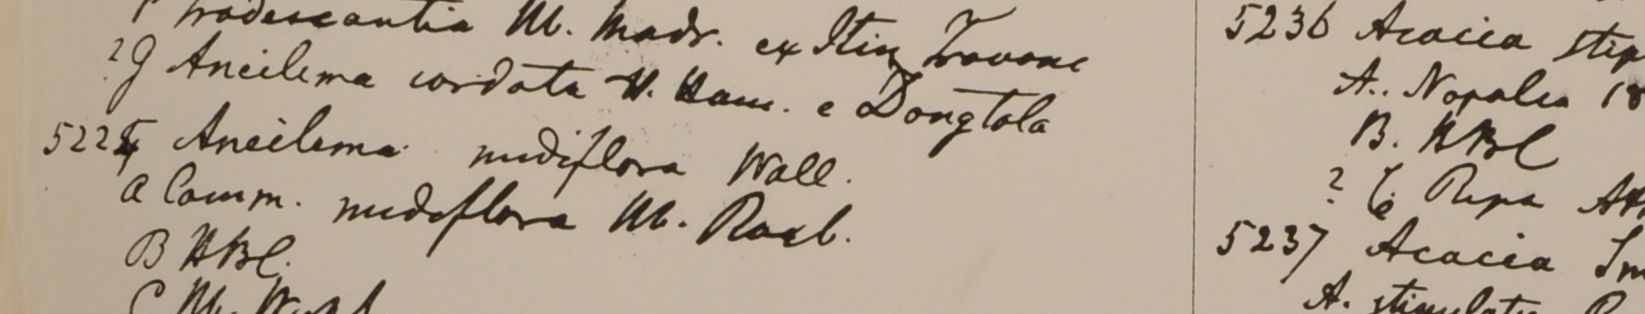 Tradescantia Hb. Madr. ex Itin Travanc
?g Aneilema cordata H. Ham. e Dongtola
5224 Aneilema nudiflora Wall.
a Comm. nudiflora Hb. Roxb.
B HBC.
C Hb. Wight
5236 Acacia stip
A. Nopalea 18
B. HBC
? C Ripa
5237 Acacia Sm
A. stipulata R